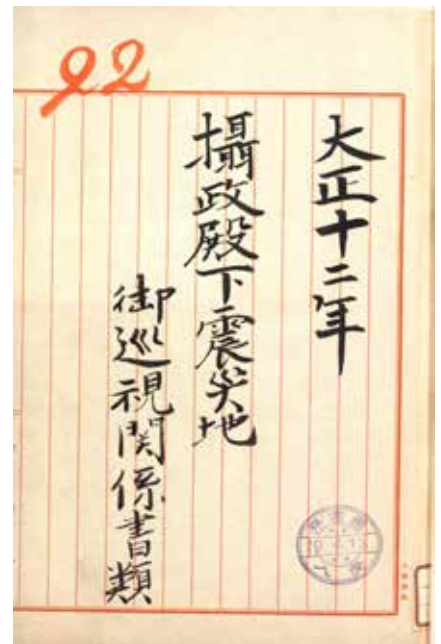 22
大正十二年
攝政殿下震災地
御巡視関係書類